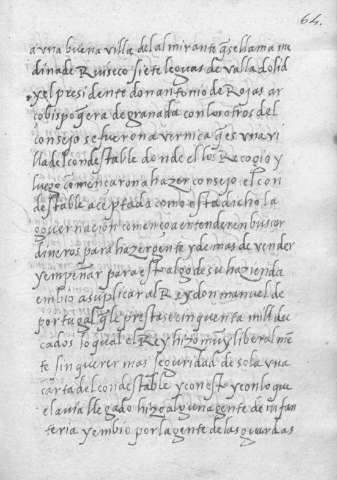 64.
a vna buena villa del almirante q̃ se llama me
dina de Ruiseco siete leguas de valladolid
y el presidente don antonio de Rojas ar
cobispo q̃ era de granada con los otros del
consejo se fueron a vernica q̃ es vna vi
lla del condestable donde el los Recogio y
luego començaron a hazer consejo el con
destable aceptada como esta dicho la
governacion començo a entender en buscar
dineros para hazer gente y demas de vender
y empeñar para esto algo de su hazienda
embio a suplicar al Rey don manuel de
portugal q̃ le prestase cinquenta mill du
cados lo qual el Rey hizo muy liberalmē
te sin querer mas seguridad de sola vna
carta del condestable y con esto y con lo que
el avia llegado hizo alguna gente de infan
teria y embio por la gente de las guardas